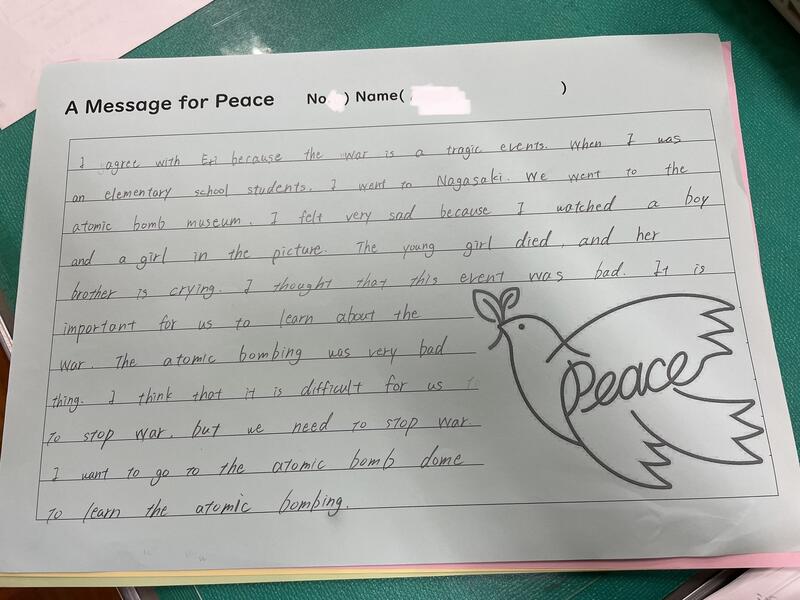 A Message for Peace No. ) Name( )
I agree with Eri because the war is a tragic events. When I was
an elementary school students. I went to Nagasaki. We went to the
atomic bomb museum. I felt very sad because I watched a boy
and a girl in the picture. The young girl died, and her
brother is crying. I thought that this event was bad. It is
important for us to learn about the
war. The atomic bombing was very bad
thing. I think that it is difficult for us
to stop war. but we need to stop war.
I want to go to the atomic bomb dome
to learn the atomic bombing.
Peace